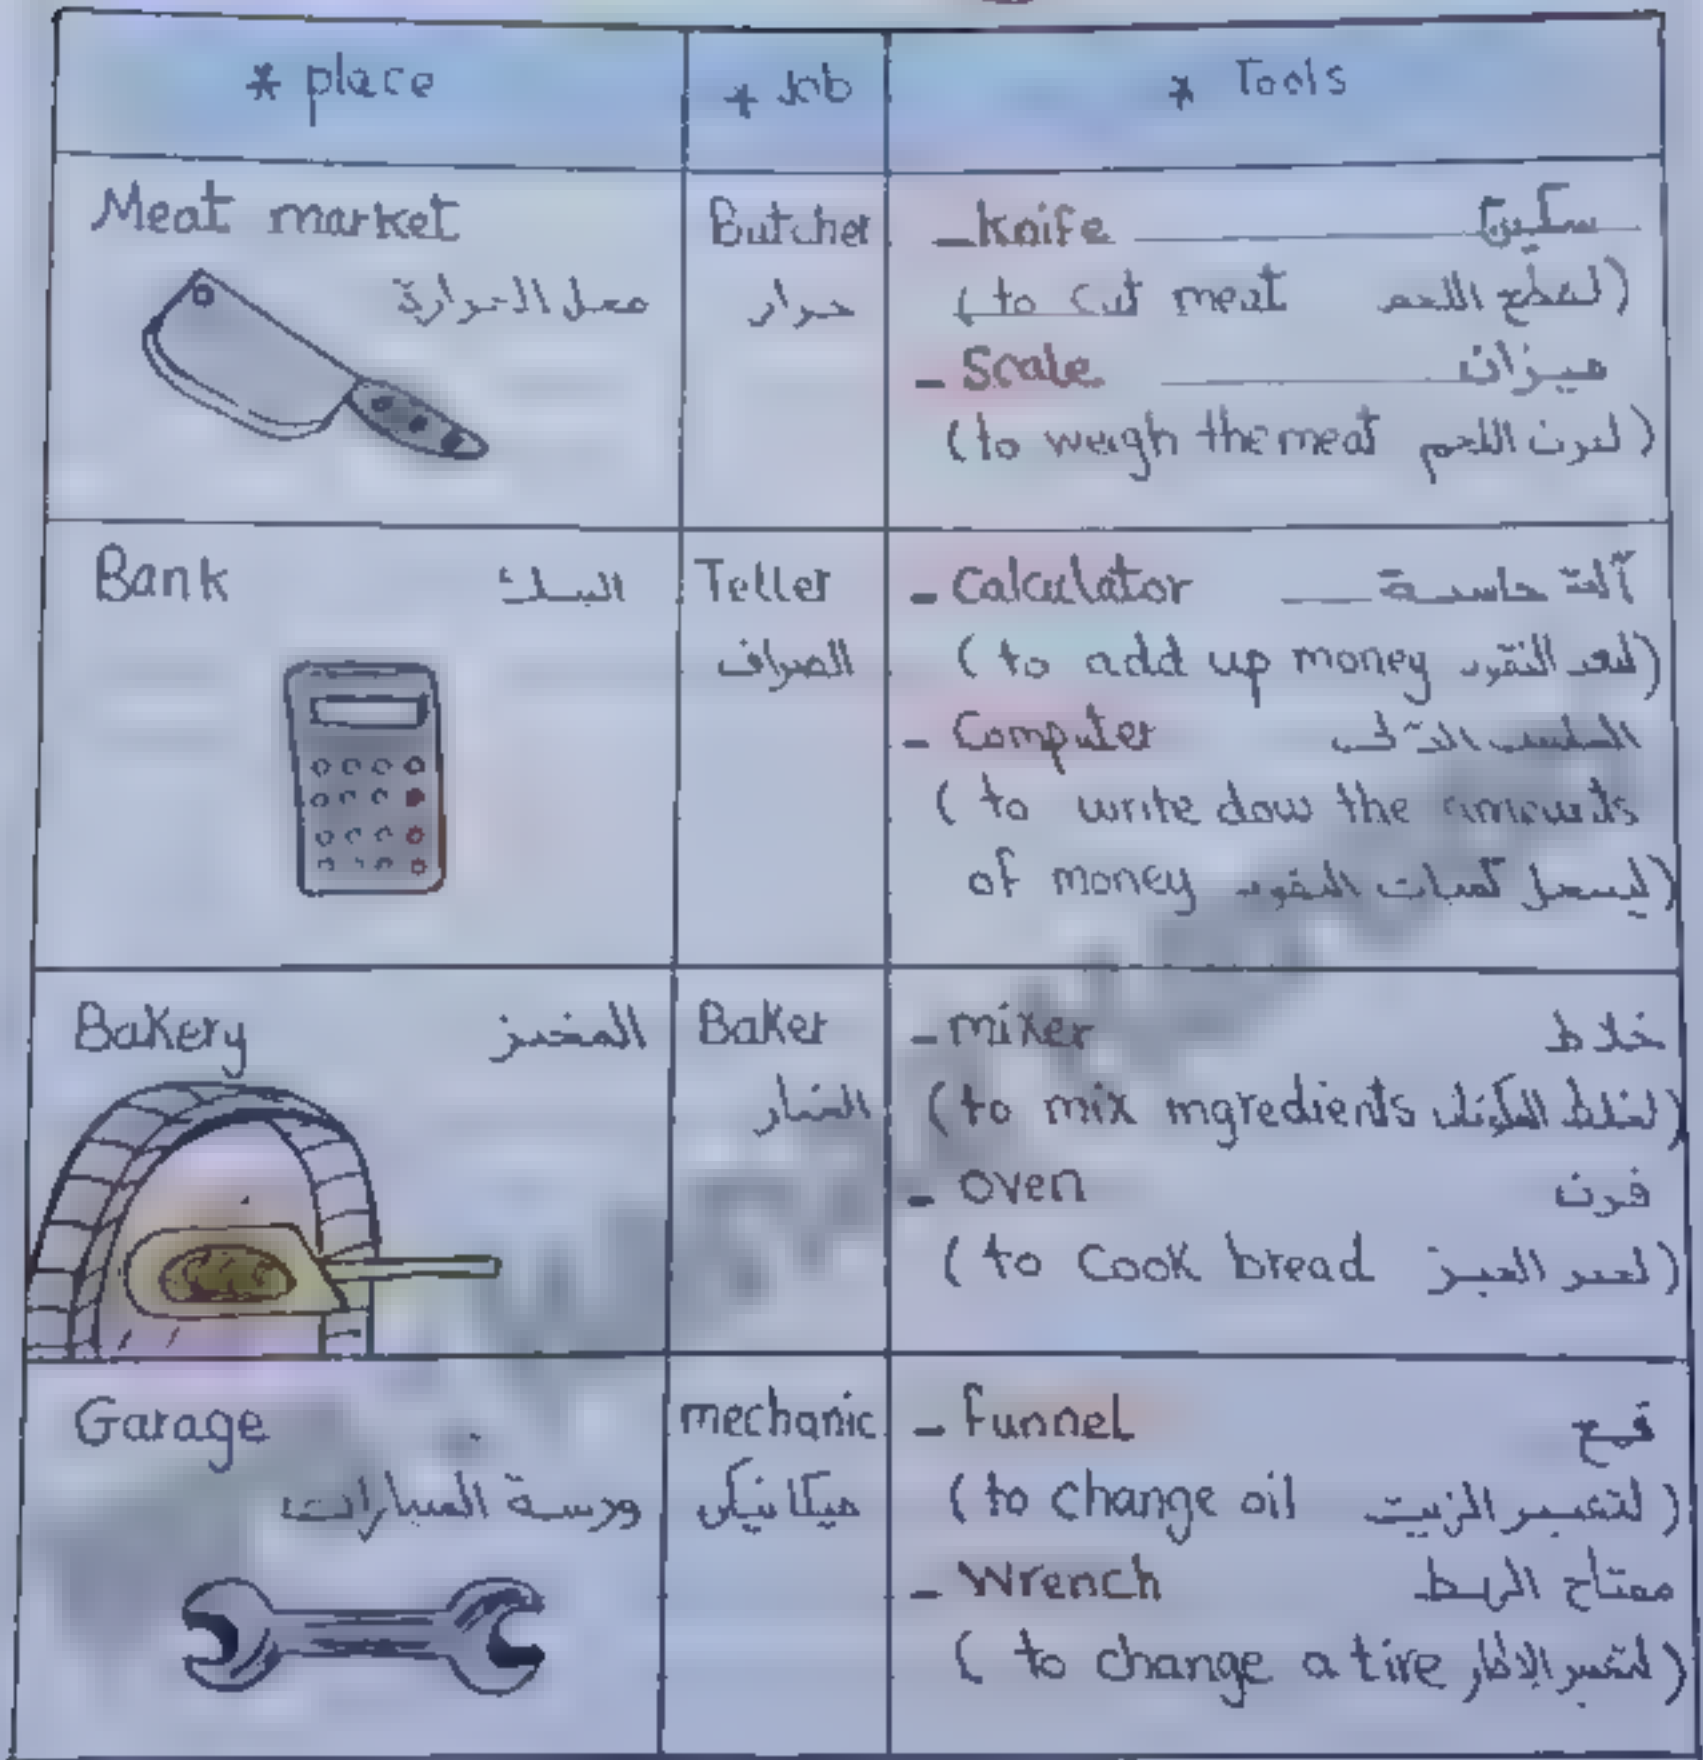 * place
* Job
* Tools
Meat market
محل الجزارة
Butcher
جزار
- Knife سكين
(to cut meat لقطع اللحم)
- Scale ميزان
(to weigh the meat لوزن اللحم)
Bank البنك
Teller
الصراف
- Calculator آلة حاسبة
(to add up money لعد النقود)
- Computer الحاسب الآلى
(to write dow the amounts
of money ليسجل كميات النقود)
Bakery المخبز
Baker
الخباز
- mixer خلاط
(to mix ingredients لخلط المكونات)
- oven فرن
(to cook bread لخبز الخبز)
Garage
ورشة السيارات
mechanic
ميكانيكى
- funnel قمع
(to change oil لتغيير الزيت)
- Wrench مفتاح الربط
(to change a tire لتغيير الإطار)